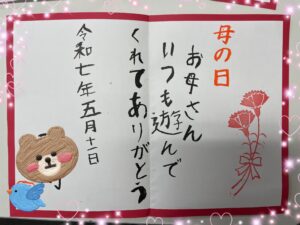 母の日
お母さん
いつも遊んで
くれてありがとう
令和七年五月十一日